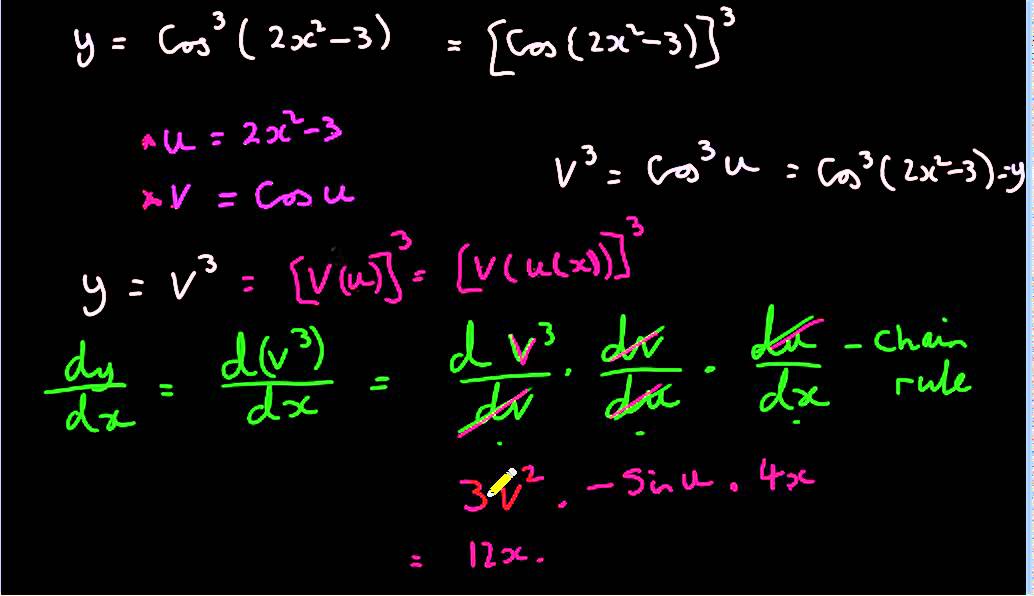 y = Cos³(2x²-3) = [Cos(2x²-3)]³
* u = 2x²-3
* v = Cos u
v³ = Cos³u = Cos³(2x²-3) = y
y = v³ = [v(u)]³ = [v(u(x))]³
dy/dx = d(v³)/dx = dv³/dv · dv/du · du/dx - chain rule
3v² · -Sin u · 4x
= 12x ·